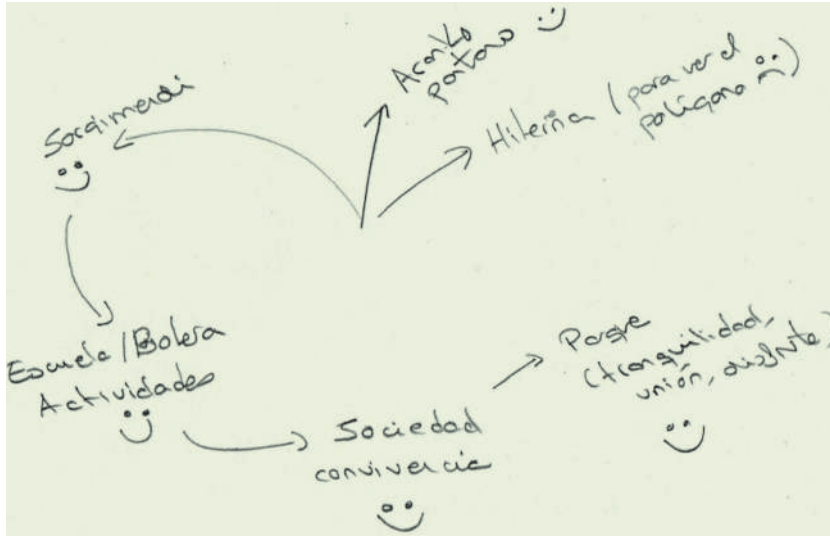 Sorgimendi
Hileria (para ver el
polígono
Escuela/Bolera
Actividades
Sociedad
convivencia
Parque
(tranquilidad,
unión, disfrute)